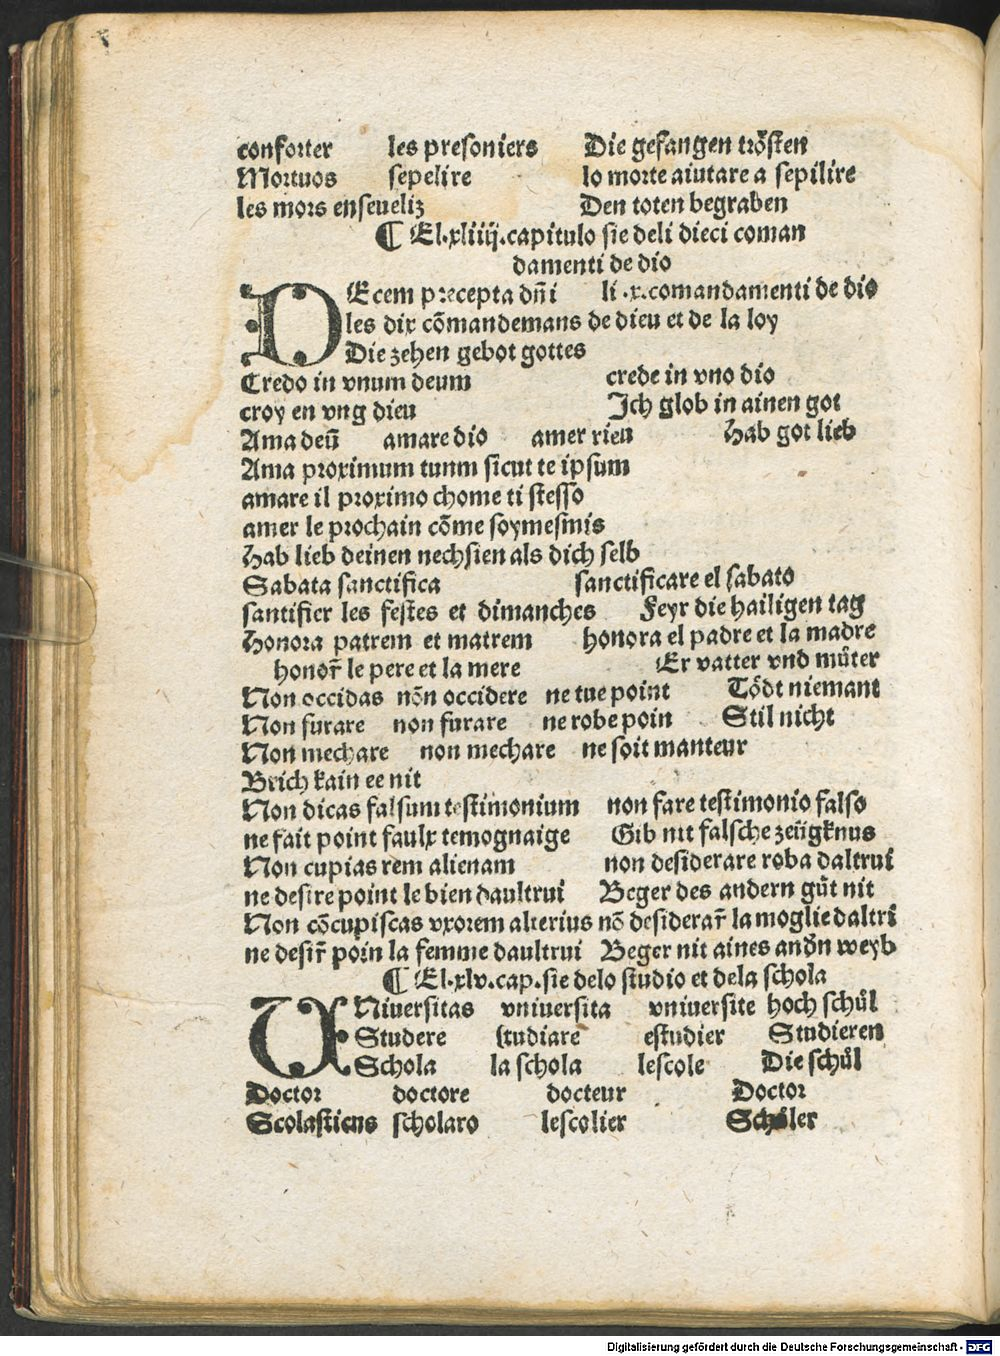 conforter les presoniers Die gefangen trösten
Mortuos sepelire lo morte aiutare a sepilire
les mors enseueliz Den toten begraben
¶ El.xliiij.capitulo sie deli dieci coman
damenti de dio
DEcem precepta dn̄i li .x.comandamenti de dio
les dix cōmandemans de dieu et de la loy
Die zehen gebot gottes
Credo in vnum deum crede in vno dio
croy en vng dieu Ich glob in ainen got
Ama deū amare dio amer rieu Hab got lieb
Ama proximum tunm sicut te ipsum
amare il proximo chome ti stesso
amer le prochain cōme soymesmis
Hab lieb deinen nechsien als dich selb
Sabata sanctifica sanctificare el sabato
santifier les festes et dimanches Feyr die hailigen tag
Honora patrem et matrem honora el padre et la madre
honor̄ le pere et la mere Er vatter vnd můter
Non occidas nōn occidere ne tue point Tödt niemant
Non furare non furare ne robe poin Stil nicht
Non mechare non mechare ne soit manteur
Brich kain ee nit
Non dicas falsum testimonium non fare testimonio falso
ne fait point faulx temognaige Gib nit falsche zeügknus
Non cupias rem alienam non desiderare roba daltrui
ne desire point le bien daultrui Beger des andern gůt nit
Non cōcupiscas vxorem alterius nō desiderar̄ la moglie daltri
ne desir̄ poin la femme daultrui Beger nit aines andn̄ weyb
¶ El.xlv.cap.sie delo studio et dela schola
VNiuersitas vniuersita vniuersite hoch schůl
Studere studiare estudier Studieren
Schola la schola lescole Die schůl
Doctor doctore docteur Doctor
Scolasticus scholaro lescolier Schůler
Digitalisierung gefördert durch die Deutsche Forschungsgemeinschaft - DFG